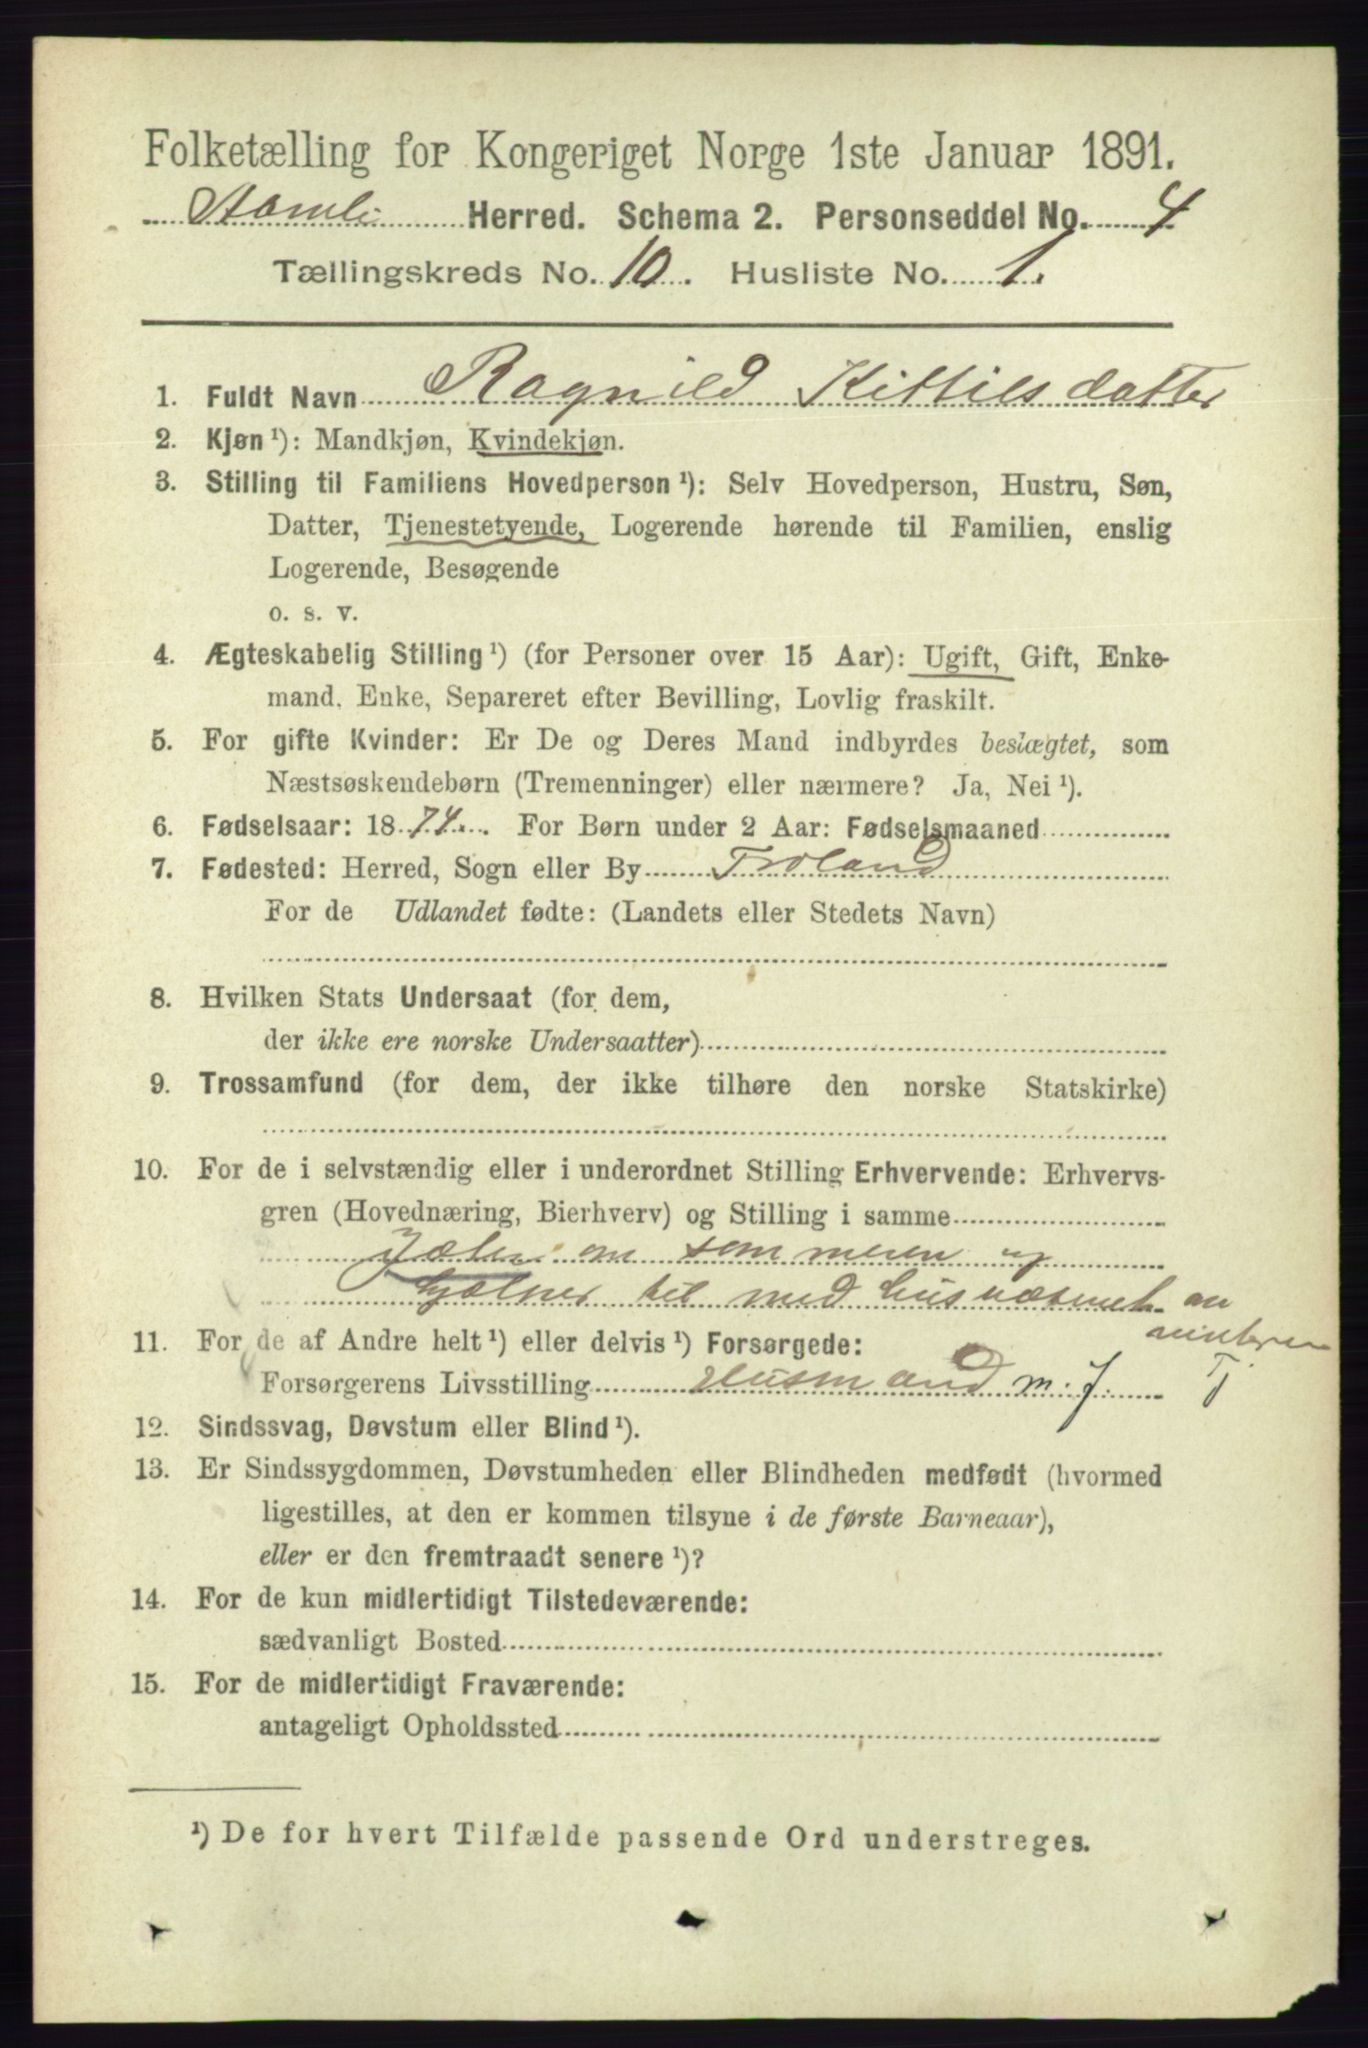 Folketælling for Kongeriget Norge 1ste Januar 1891.
Aamli Herred. Schema 2. Personseddel No. 4
Tællingskreds No. 10. Husliste No. 1.
1. Fuldt Navn Ragnild Kittilsdatter
2. Kjøn ¹): Mandkjøn, Kvindekjøn.
3. Stilling til Familiens Hovedperson ¹): Selv Hovedperson, Hustru, Søn,
Datter, Tjenestetyende, Logerende hørende til Familien, enslig
Logerende, Besøgende
o. s. v.
4. Ægteskabelig Stilling ¹) (for Personer over 15 Aar): Ugift, Gift, Enke-
mand, Enke, Separeret efter Bevilling, Lovlig fraskilt.
5. For gifte Kvinder: Er De og Deres Mand indbyrdes beslægtet, som
Næstsøskendebørn (Tremenninger) eller nærmere? Ja, Nei ¹).
6. Fødselsaar: 1874. For Børn under 2 Aar: Fødselsmaaned
7. Fødested: Herred, Sogn eller By Froland
For de Udlandet fødte: (Landets eller Stedets Navn)
8. Hvilken Stats Undersaat (for dem,
der ikke ere norske Undersaatter)
9. Trossamfund (for dem, der ikke tilhøre den norske Statskirke)
10. For de i selvstændig eller i underordnet Stilling Erhvervende: Erhvervs-
gren (Hovednæring, Bierhverv) og Stilling i samme
om sommeren og
hjælper til med husvæsenet om
vinteren
11. For de af Andre helt ¹) eller delvis ¹) Forsørgede:
Forsørgerens Livsstilling Husmand m. J. Tj
12. Sindssvag, Døvstum eller Blind ¹).
13. Er Sindssygdommen, Døvstumheden eller Blindheden medfødt (hvormed
ligestilles, at den er kommen tilsyne i de første Barneaar),
eller er den fremtraadt senere ¹)?
14. For de kun midlertidigt Tilstedeværende:
sædvanligt Bosted
15. For de midlertidigt Fraværende:
antageligt Opholdssted
¹) De for hvert Tilfælde passende Ord understreges.